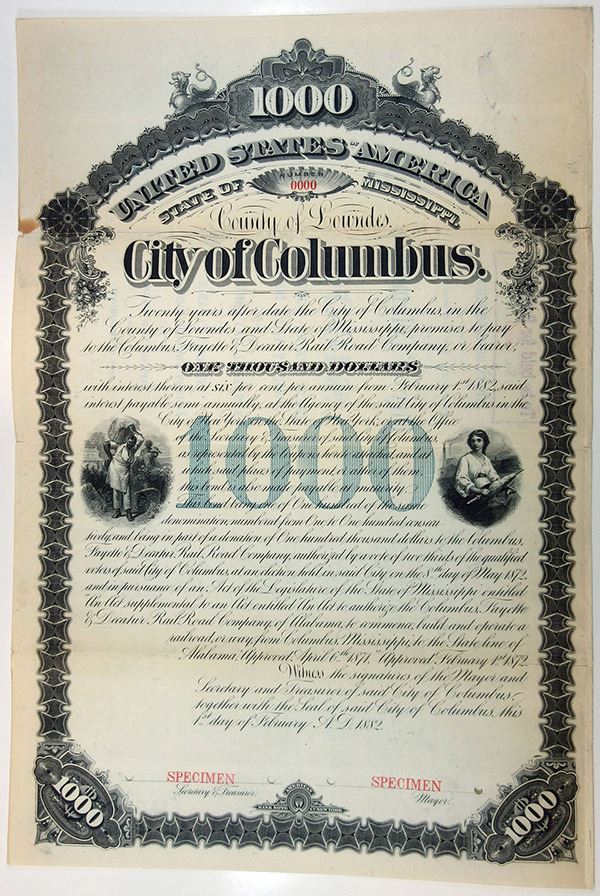 1000
UNITED STATES OF AMERICA
NUMBER
0000
STATE OF MISSISSIPPI,
County of Lowndes.
City of Columbus.
Twenty years after date the City of Columbus, in the
County of Lowndes and State of Mississippi, promises to pay
to the Columbus, Fayette & Decatur Rail Road Company, or bearer,
ONE THOUSAND DOLLARS
with interest thereon at SIX per cent per annum from February 1st 1882, said
interest payable semi-annually, at the Agency of the said City of Columbus in the
City of New York and State of New York, or in the Office
of the Secretary & Treasurer of said City of Columbus
at which said places of payment
this bond is also made payable at maturity.
This bond being one of One hundred of like
1000
denomination, numbered from One to One hundred consecu-
tively, and being in part of a donation of One hundred thousand dollars to the Columbus,
Fayette & Decatur Rail Road Company, authorized by a vote of two thirds of the qualified
voters of said City of Columbus, at an election held in said City on the 8th day of May 1872,
and in pursuance of an Act of the Legislature of the State of Mississippi entitled
"An Act supplemental to an Act entitled An Act to authorize the Columbus, Fayette
& Decatur Rail Road Company of Alabama, to commence, build, and operate a
railroad, or way, from Columbus, Mississippi, to the State line of
Alabama, Approved, April 6th 1871," Approved February 1st 1872.
Witness the signatures of the Mayor and
Secretary and Treasurer of said City of Columbus,
together with the Seal of said City of Columbus, this
1st day of February A.D. 1882.
SPECIMEN SPECIMEN
Secretary & Treasurer. Mayor.
AMERICAN
BANK NOTE CO. NEW YORK
1000 1000